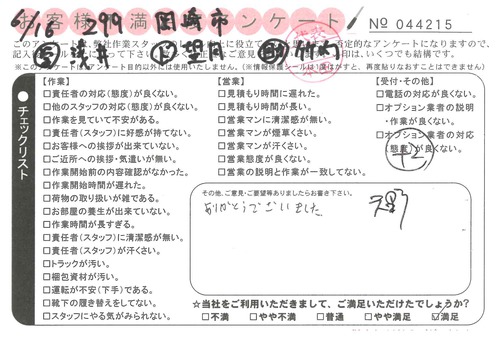 6/16 299 岡崎市
お客様 満 アンケート
№ 044215
このアンケートは、弊社作業スタ
記入
※このアンケートは
営 浅井 ド 望月 助 竹内
チェックリスト
【作業】
□責任者の対応(態度)が良くない。
□他のスタッフの対応(態度)が良くない。
□作業を見ていて不安がある。
□責任者(スタッフ)に好感が持てない。
□お客様への挨拶が出来ていない。
□ご近所への挨拶・気遣いが無い。
□作業開始前の内容確認がなかった。
□作業開始時間が遅れた。
□荷物の取り扱いが雑である。
□お部屋の養生が出来ていない。
□作業時間が長すぎる。
□責任者(スタッフ)に清潔感が無い。
□責任者(スタッフ)が汗くさい。
□トラックが汚い。
□梱包資材が汚い。
□運転が不安(下手)である。
□靴下の履き替えをしてない。
□スタッフにやる気がみられない。
【営業】
□見積もり時間に遅れた。
□見積もり時間が長い。
□営業マンに清潔感が無い。
□営業マンが煙草くさい。
□営業マンが汗くさい。
□営業態度が良くない。
□営業の説明と作業が一致してない。
【受付・その他】
□電話の対応が良くない。
□オプション業者の説明
・作業が良くない。
□オプション業者の対応
(態度)が良くない。
+2
その他、ご意見・ご要望等ありましたらお書き下さい。
ありがとうございました
☆当社をご利用いただきまして、ご満足いただけたでしょうか?
□不満 □やや不満 □普通 □やや満足 ☑満足